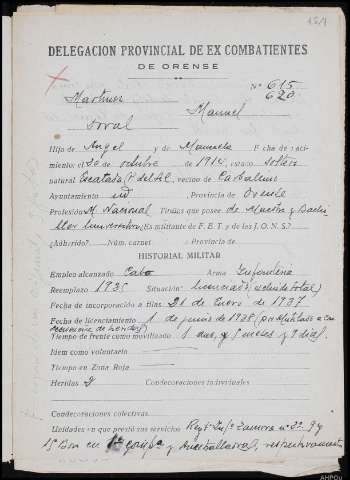 DELEGACION PROVINCIAL DE EX COMBATIENTES
DE ORENSE
Nº 615
620
Martinez Manuel
Hijo de Angel y de Manuela Fecha de naci-
miento: el 30 de octubre de 1914, estado soltero
natural vecino de Carballino
Ayuntamiento id Provincia de Orense
Profesión M. Nacional Títulos que posee de Maestro y Bachi
ller Universitario ¿Es militante de F. E. T. y de las J. O. N. S.?
¿Adherido? Núm. carnet Provincia de
HISTORIAL MILITAR
Empleo alcanzado Cabo Arma Infantería
Reemplazo 1935 Situación licenciado (excluido total)
Fecha de incorporación a filas 21 de Enero de 1937
Fecha de licenciamiento 1 de junio de 1938 (
de heridas)
Tiempo de frente como movilizado 1 años, y 9 meses y 9 días.
Idem como voluntario
Tiempo en Zona Roja
Heridas 2 Condecoraciones individuales
Condecoraciones colectivas
Unidades en que prestó sus servicios Regtº Infª Zamora nº 29 y
15 Bon en 1ª compª y Ametralladoras, respectivamente
AHPOu